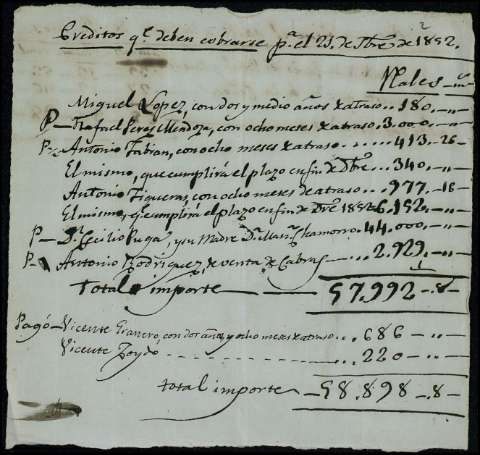 Creditos q.e deben cobrarse p.a el 21. de Dbre. de 1852.
Reales - m.s
Miguel Lopez, con dos y medio años de atraso.. 180.-"-
P- Rafael Perez Mendoza, con ocho meses de atraso. 3.000.-"-
P- Antonio Fabian, con ocho meses de atraso..... 413.-26-
El mismo, que cumplirá el plazo en fin de Dbre... 340.-"-
Antonio Figueras, con ocho meses de atraso... 977.-16-
El mismo, q.e cumplirá el plazo en fin de Dbre 1852 6.152.-"-
P- D.n Cecilio Puga, y su Madre D.a Mar.a Chamorro. 44.000.-"-
P- Antonio Rodriguez, de venta de Cabras.... 2.929.-"-
Total importe - 57.992-8-
Pagó- Vicente, con dos años, y ocho meses de atraso... 686-"-
Vicente - - - - - - - - - 220-"-
total importe - 58.898-8-